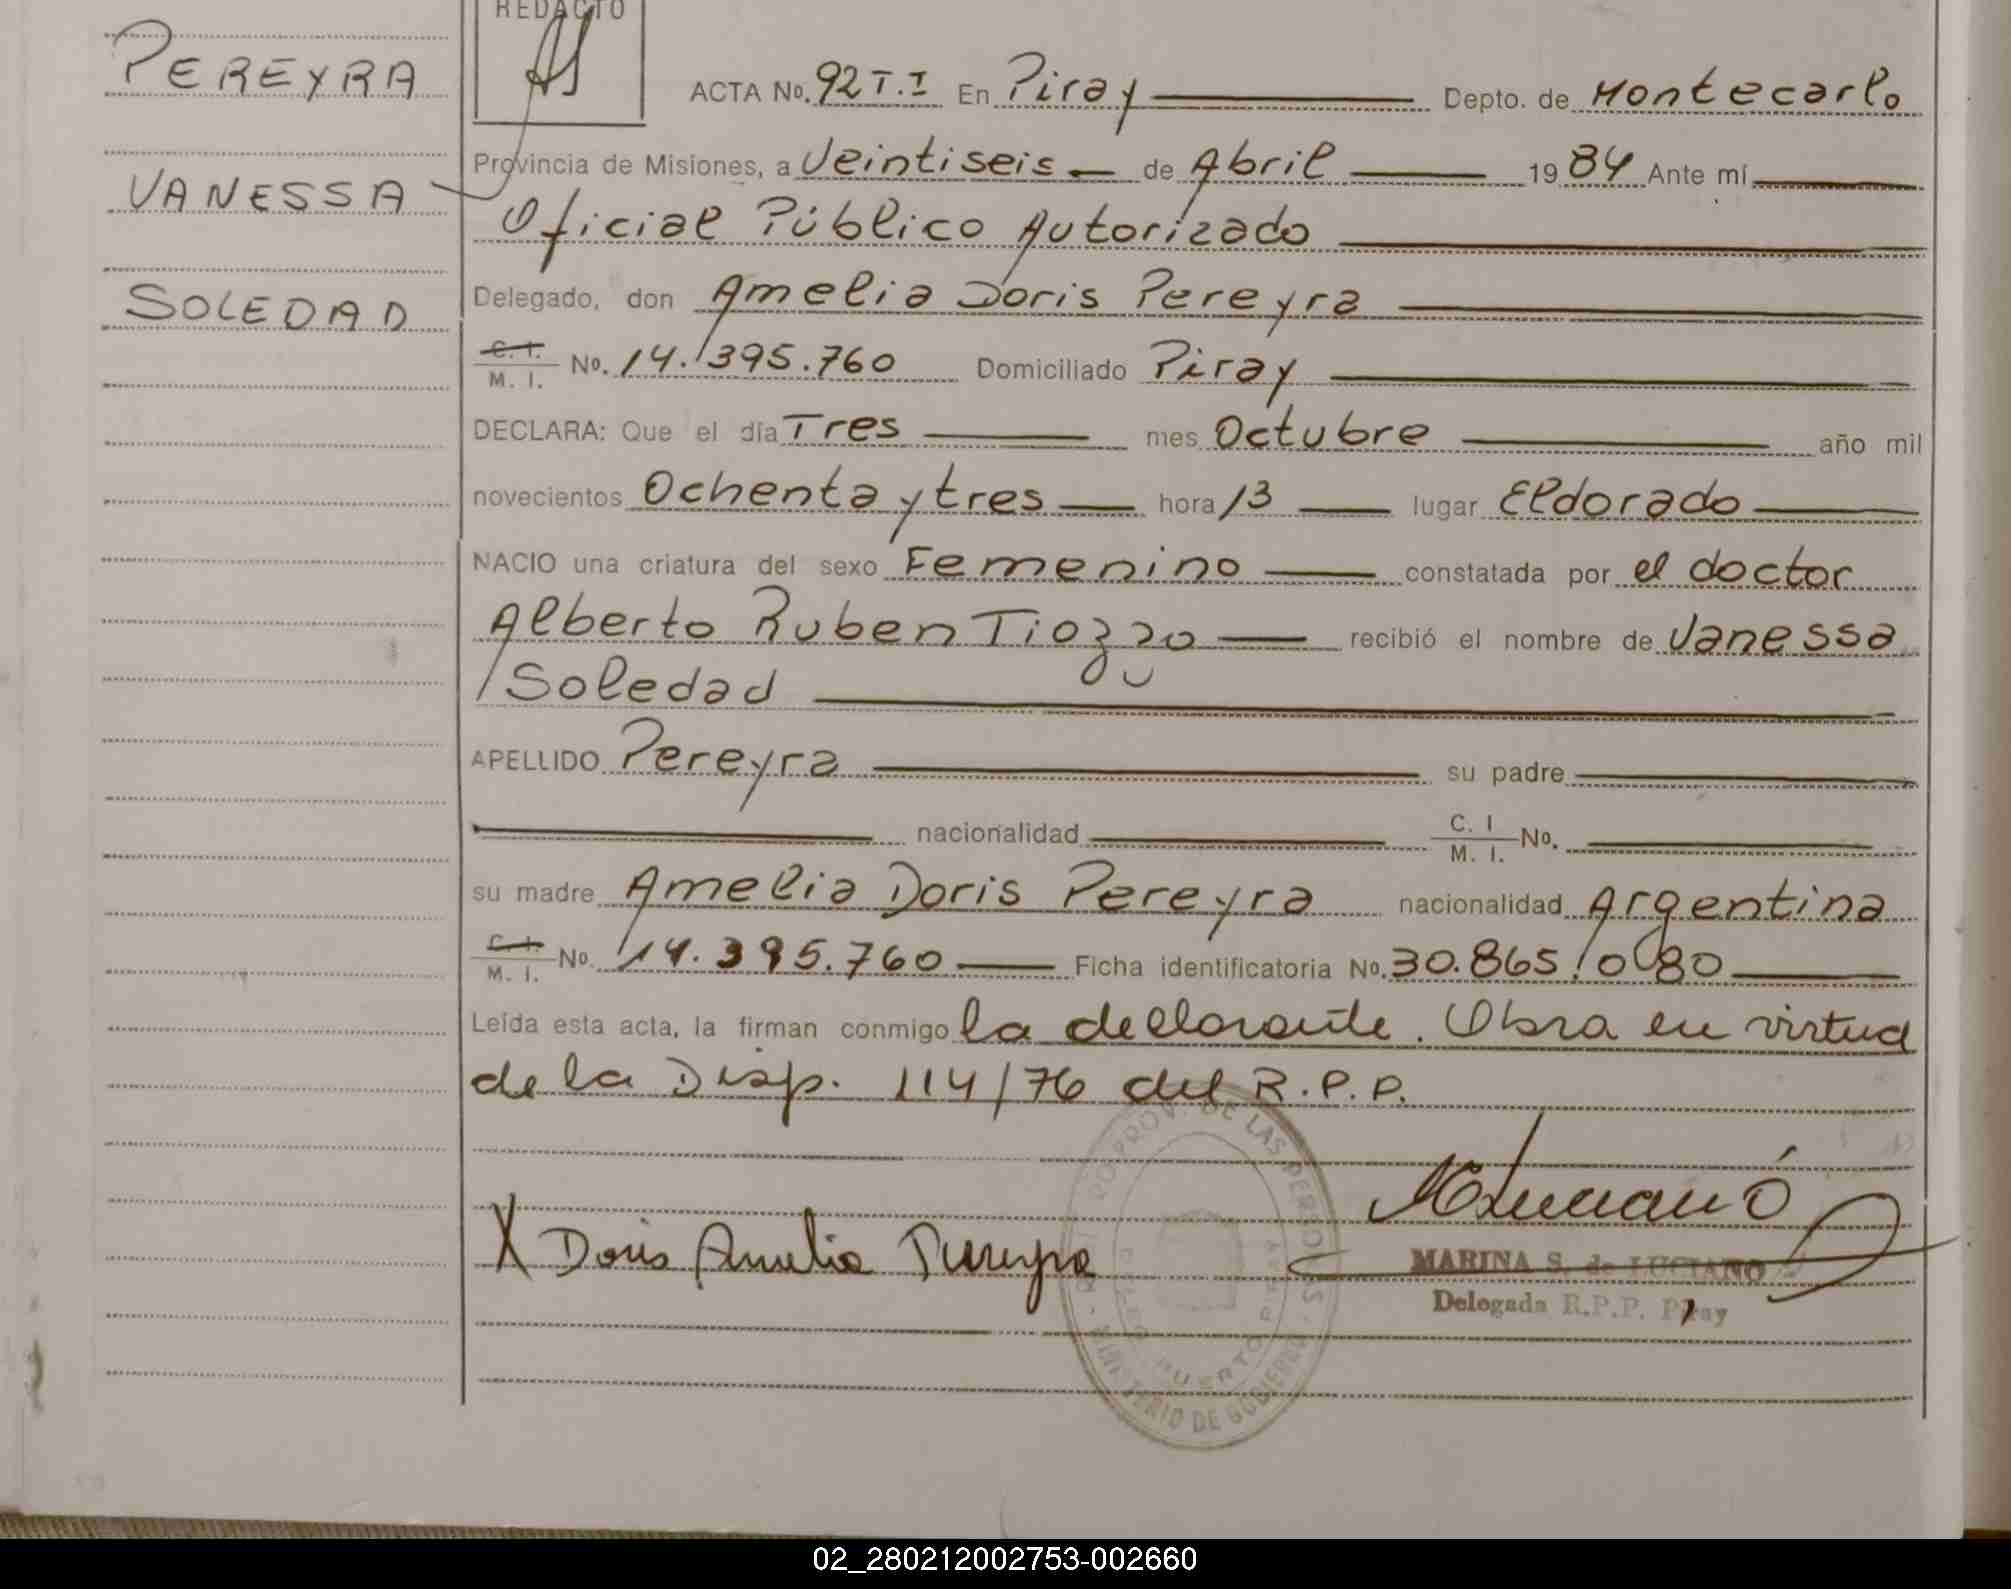 REDACTO
PEREYRA
VANESSA
SOLEDAD
ACTA No. 92 T. I En Piray Depto. de Montecarlo
Provincia de Misiones, a Veintiseis de Abril 1984 Ante mí
Oficial Público Autorizado
Delegado, don Amelia Doris Pereyra
C. I. M. I. No. 14.395.760 Domiciliado Piray
DECLARA: Que el día Tres mes Octubre año mil
novecientos Ochenta y tres hora 13 lugar Eldorado
NACIO una criatura del sexo Femenino constatada por el doctor
Alberto Ruben Tiozzo recibió el nombre de Vanessa
Soledad
APELLIDO Pereyra su padre
nacionalidad C. I M. I. No.
su madre Amelia Doris Pereyra nacionalidad Argentina
C. I. M. I. No. 14.395.760 Ficha identificatoria No. 30.865.080
Leída esta acta, la firman conmigo la declarante. Obra en virtud
de la Disp. 114/76 del R.P.P.
X Doris Amelia Pereyra
MARINA S. de LUCIANO
Delegada R.P.P. Piray
PROV. DE LAS PERSONAS
MINISTERIO DE GOBIERNO
PUERTO
02_280212002753-002660